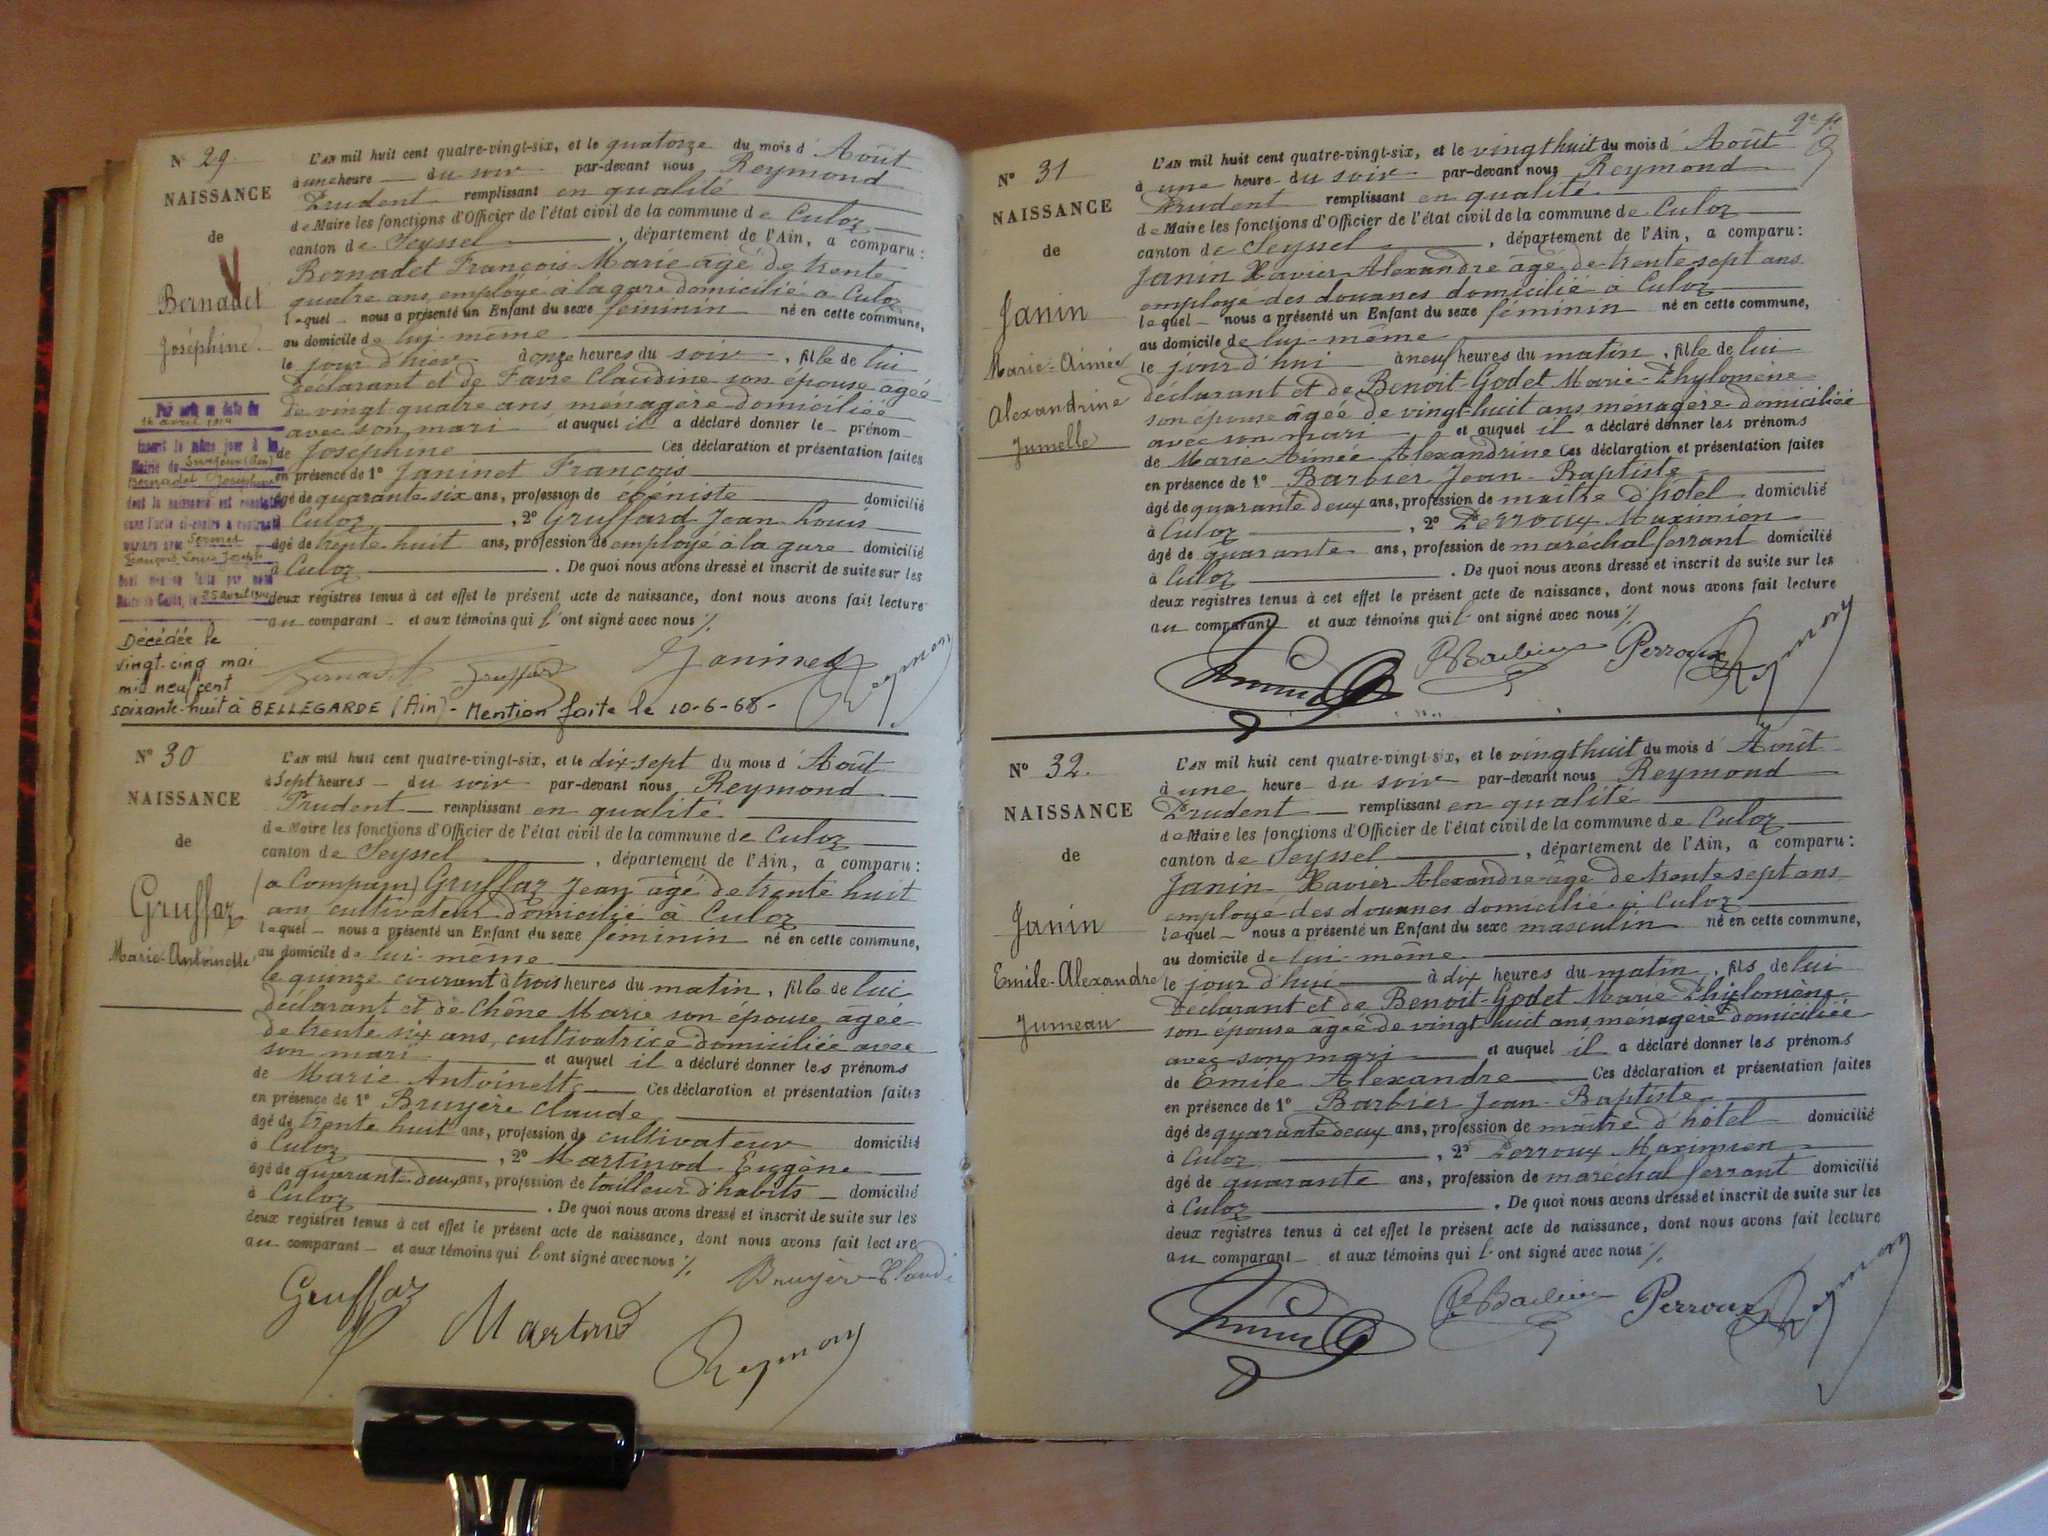 N° 29.
NAISSANCE
de
Bernadet
Joséphine.
Par acte en date du
14 avril 1914
inscrit le même jour à la
Mairie de
Bernadet Joséphine
dont la naissance est constatée
dans l'acte ci-contre a contracté
mariage avec
François Louis Joseph
Dont mention faite par nous
25 avril 1914
Décédée le
vingt-cinq mai
mil neuf cent
soixante-huit à BELLEGARDE (Ain) - Mention faite le 10-6-68 -
L'AN mil huit cent quatre-vingt-six, et le quatorze du mois d'Août
à une heure du soir par-devant nous Reymond
Prudent remplissant en qualité
de Maire les fonctions d'Officier de l'état civil de la commune de Culoz
canton de Seyssel, département de l'Ain, a comparu:
Bernadet François Marie âgé de trente
quatre ans, employé à la gare domicilié à Culoz
lequel nous a présenté un Enfant du sexe féminin né en cette commune,
au domicile de lui-même
le jour d'hier à onze heures du soir, fille de lui
déclarant et de Favre Claudine son épouse âgée
de vingt quatre ans ménagère domiciliée
avec son mari et auquel il a déclaré donner le prénom
de Joséphine Ces déclaration et présentation faites
en présence de 1° Janinet François
âgé de quarante six ans, profession de ébéniste domicilié
à Culoz, 2° Gruffard Jean Louis
âgé de trente huit ans, profession de employé à la gare domicilié
à Culoz. De quoi nous avons dressé et inscrit de suite sur les
deux régistres tenus à cet effet le présent acte de naissance, dont nous avons fait lecture
au comparant et aux témoins qui l'ont signé avec nous ./.
Bernadet Gruffard Janinet Reymond
N° 30
NAISSANCE
de
Gruffaz
Marie-Antoinette
L'AN mil huit cent quatre-vingt-six, et le dix-sept du mois d'Août
à sept heures du soir par-devant nous Reymond
Prudent remplissant en qualité
de Maire les fonctions d'Officier de l'état civil de la commune de Culoz
canton de Seyssel, département de l'Ain, a comparu:
(a Comparu) Gruffaz Jean âgé de trente huit
ans cultivateur domicilié à Culoz
lequel nous a présenté un Enfant du sexe féminin né en cette commune,
au domicile de lui-même
le quinze courant à trois heures du matin, fille de lui
déclarant et de Chêne Marie son épouse âgée
de trente six ans, cultivatrice domiciliée avec
son mari et auquel il a déclaré donner les prénoms
de Marie Antoinette Ces déclaration et présentation faites
en présence de 1° Bruyère Claude
âgé de trente huit ans, profession de cultivateur domicilié
à Culoz, 2° Martinod Eugène
âgé de quarante deux ans, profession de tailleur d'habits domicilié
à Culoz. De quoi nous avons dressé et inscrit de suite sur les
deux registres tenus à cet effet le présent acte de naissance, dont nous avons fait lecture
au comparant et aux témoins qui l'ont signé avec nous ./.
Bruyère Claude
Gruffaz Martinod
Reymond
N° 31
NAISSANCE
de
Janin
Marie-Aimée
Alexandrine
Jumelle
L'AN mil huit cent quatre-vingt-six, et le vingt huit du mois d'Août
à une heure du soir par-devant nous Reymond
Prudent remplissant en qualité
de Maire les fonctions d'Officier de l'état civil de la commune de Culoz
canton de Seyssel, département de l'Ain, a comparu:
Janin Xavier Alexandre âgé de trente sept ans
employé des douanes domicilié à Culoz
lequel nous a présenté un Enfant du sexe féminin né en cette commune,
au domicile de lui-même
le jour d'hui à neuf heures du matin, fille de lui
déclarant et de Benoit-Godet Marie-Phylomène
son épouse âgée de vingt-huit ans ménagère domiciliée
avec son mari et auquel il a déclaré donner les prénoms
de Marie Aimée Alexandrine Ces déclaration et présentation faites
en présence de 1° Barbier Jean-Baptiste
âgé de quarante deux ans, profession de maître d'hôtel domicilié
à Culoz, 2° Perroux Maximien
âgé de quarante ans, profession de maréchal ferrant domicilié
à Culoz. De quoi nous avons dressé et inscrit de suite sur les
deux régistres tenus à cet effet le présent acte de naissance, dont nous avons fait lecture
au comparant et aux témoins qui l'ont signé avec nous ./.
Barbier Perroux Reymond
N° 32.
NAISSANCE
de
Janin
Emile-Alexandre
Jumeau
L'AN mil huit cent quatre-vingt six, et le vingt huit du mois d'Août
à une heure du soir par-devant nous Reymond
Prudent remplissant en qualité
de Maire les fonctions d'Officier de l'état civil de la commune de Culoz
canton de Seyssel, département de l'Ain, a comparu:
Janin Xavier Alexandre âgé de trente sept ans
employé des douanes domicilié à Culoz
lequel nous a présenté un Enfant du sexe masculin né en cette commune,
au domicile de lui-même
le jour d'hui à dix heures du matin, fils de lui
déclarant et de Benoit-Godet Marie Phylomène
son épouse âgée de vingt huit ans, ménagère domiciliée
avec son mari et auquel il a déclaré donner les prénoms
de Emile Alexandre Ces déclaration et présentation faites
en présence de 1° Barbier Jean-Baptiste
âgé de quarante deux ans, profession de maître d'hôtel domicilié
à Culoz, 2° Perroux Maximien
âgé de quarante ans, profession de maréchal ferrant domicilié
à Culoz. De quoi nous avons dressé et inscrit de suite sur les
deux registres tenus à cet effet le présent acte de naissance, dont nous avons fait lecture
au comparant et aux témoins qui l'ont signé avec nous ./.
Barbier Perroux Reymond